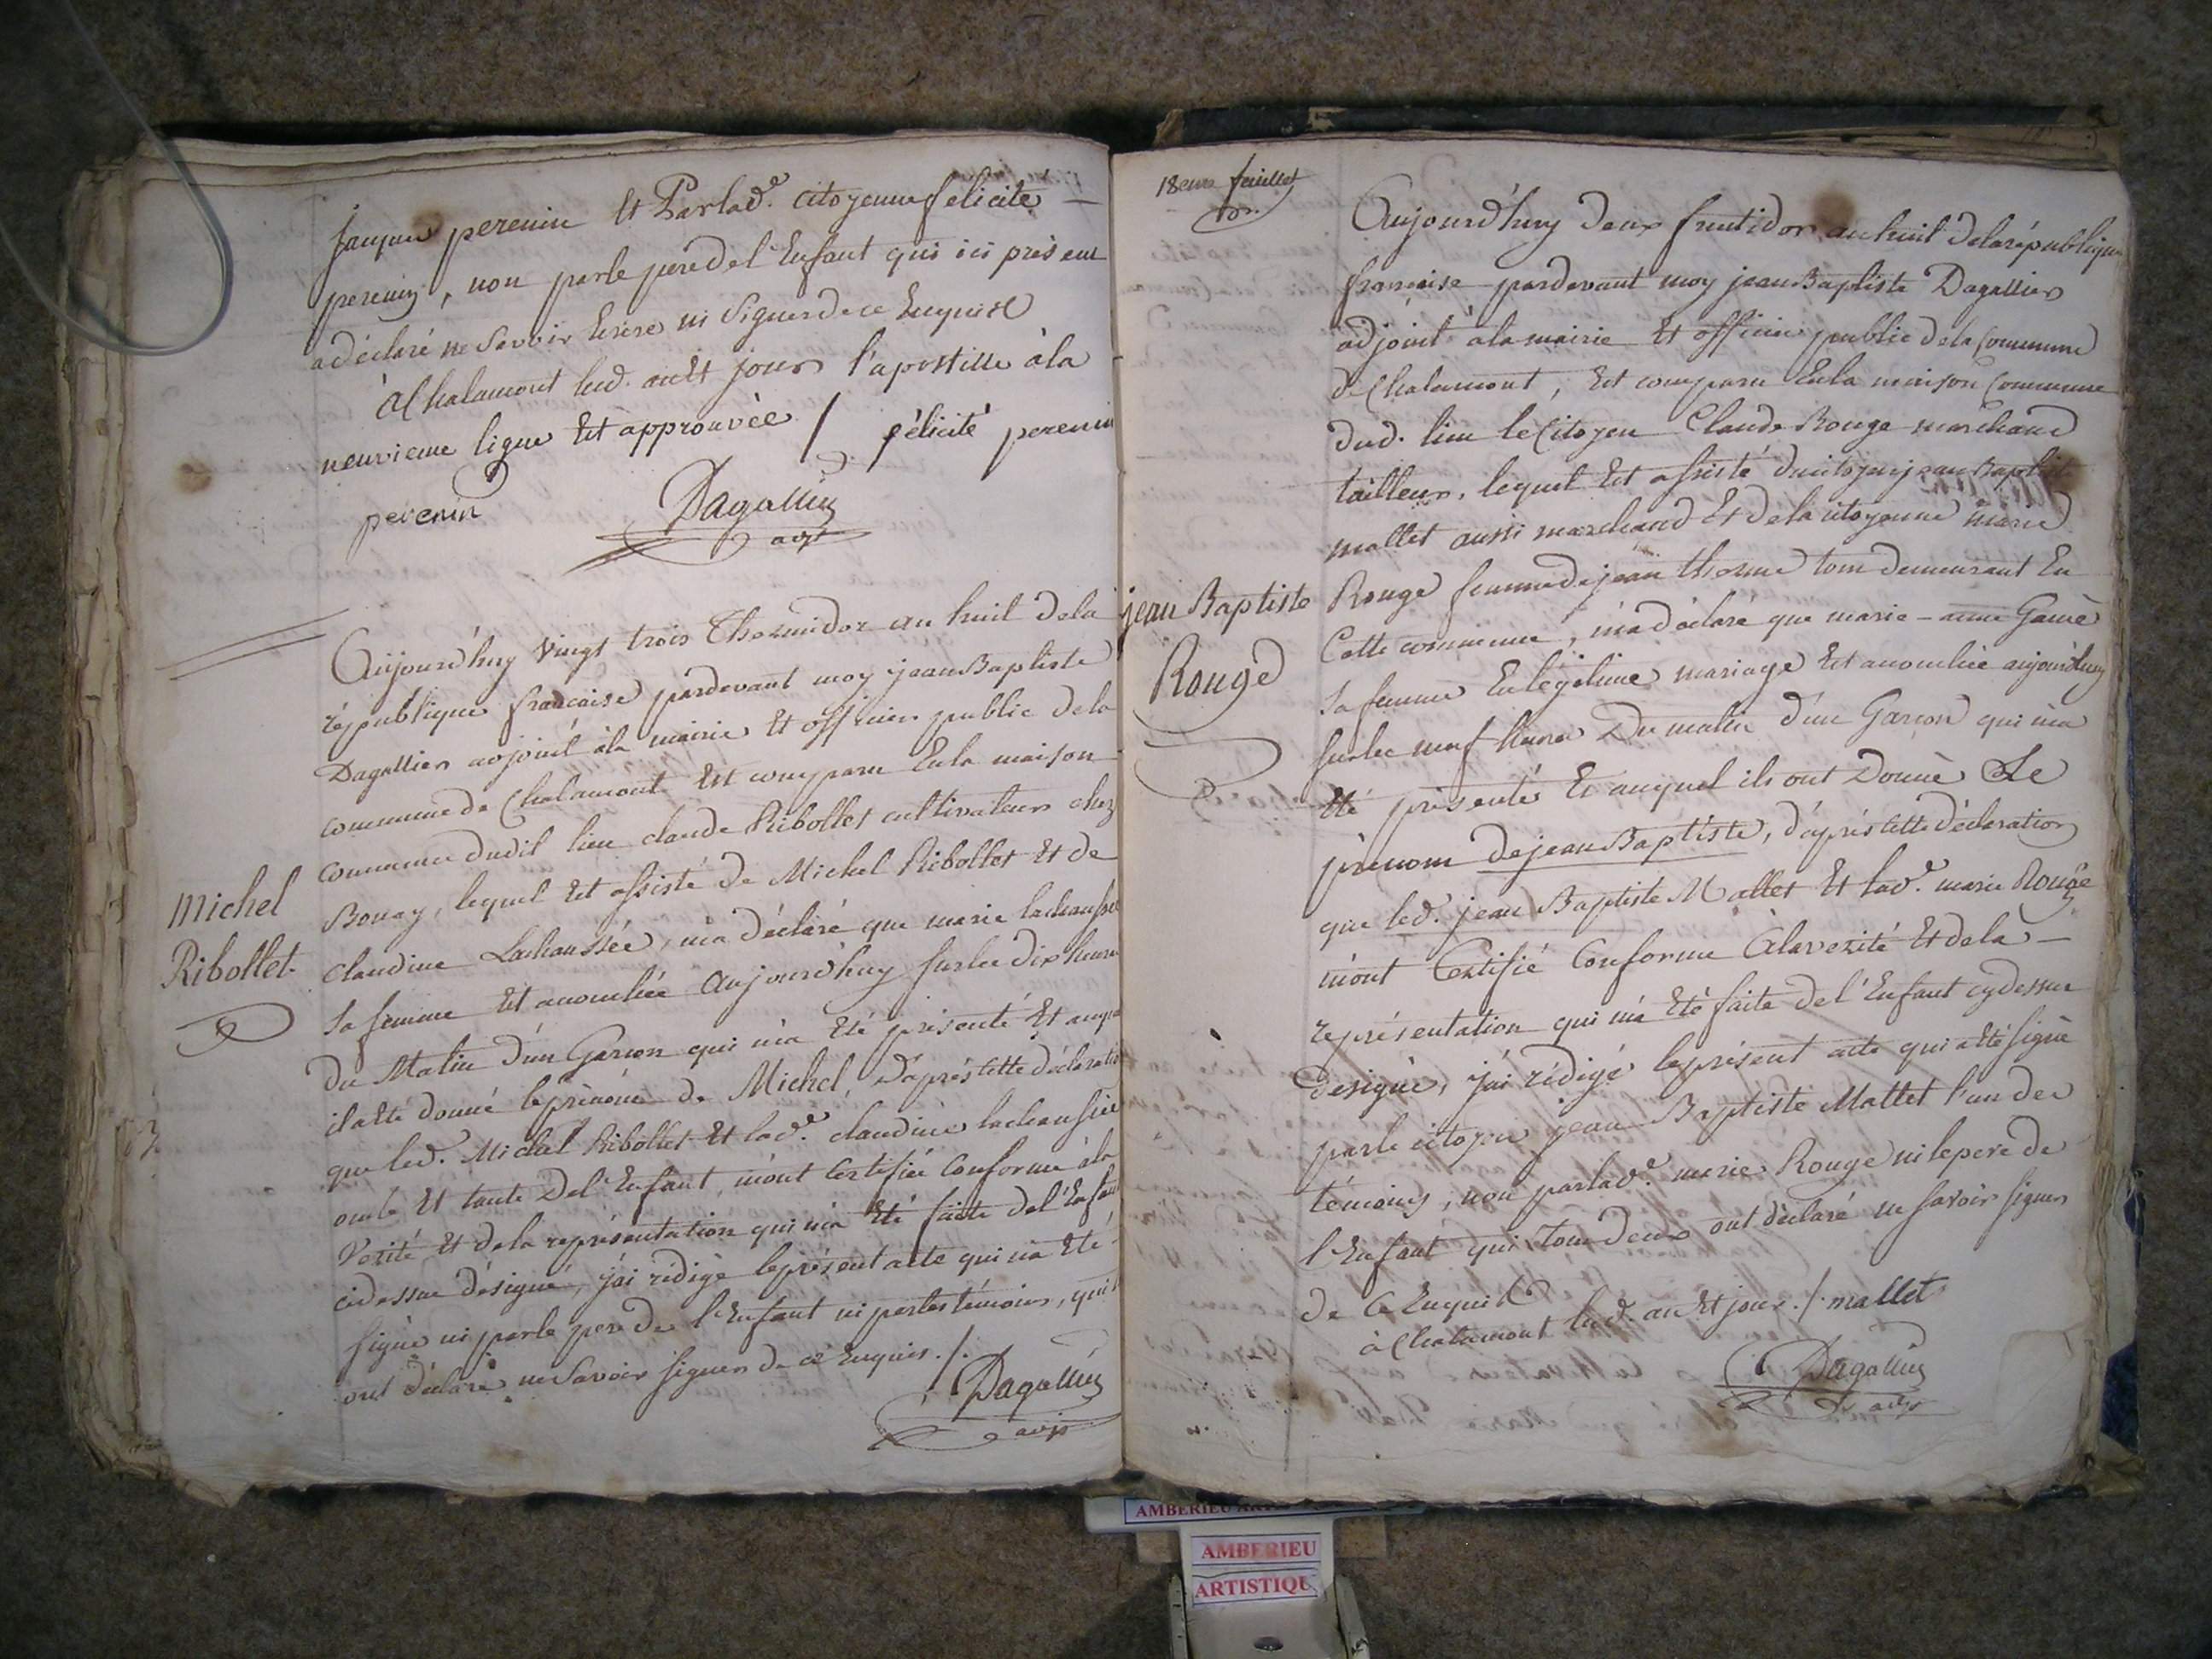 jacques perenin Et Parlad.e citoyenne felicite
perenin, non parle pere del'Enfant qui ici présent
a déclaré ne Savoir Ecrire ni Signer de ce Enquis
à Chalamont led. an Et jour l'apostille à la
neuvieme ligne Est approuvée / félicité perenin
perenin Dagallier
adjt
Aujourd'huy vingt trois Thermidor an huit dela
république francaise pardevant moy jean Baptiste
Dagallier adjoint à la mairie Et officier public dela
commune de Chalamont Est comparu Enla maison
commune dudit lieu claude Ribollet cultivateur chez
Michel
Ribollet
Bouay, lequel Est assisté de Michel Ribollet Et de
claudine Lachaussée, m'a déclaré que marie lachaussée
Sa femme Est accouchée aujourd'huy surles dix heures
du Matin d'un Garcon qui m'a Eté présenté Et auquel
il a Eté donné le prénom de Michel, D'après cette déclaration
que led. Michel Ribollet Et lad.e claudine lachaussée
oncle Et tante Del'Enfant, m'ont Certifié Conforme àla
Verité Et dela représentation qui m'a Eté faite del'Enfant
cidessus désigné, j'ai rédigé leprésent acte qui n'a Eté
signé ni parle pere de l'Enfant ni parles témoins, qui
ont déclaré ne Savoir signer de ce Enquis ./.
Dagallier
adjt
18eme feuillet
Aujourd'huy deux fructidor an huit delarépublique
francaise pardevant moy jean Baptiste Dagallier
adjoint àla mairie Et officier public dela Commune
de Chalamont, Est comparu Enla maison Commune
dud. lieu le Citoyen Claude Rouge marchand
tailleur, lequel Est assisté ducitoyen jean Baptiste
mallet aussi marchand Et dela citoyenne marie
jean Baptiste
Rouge
Rouge femme de jean thorme tous demeurant En
Cette commune, m'a déclaré que marie-anne
Sa femme En légitime mariage Est accouchée aujourd'huy
surles neuf heures Du matin d'un Garcon qui m'a
Eté présenté Et auquel ils ont Donné Le
prenom dejean Baptiste, d'après cette déclaration
que led. jean Baptiste Mallet Et lad.e marie Rouge
m'ont Certifié Conforme àlaverité Et dela
représentation qui m'a Eté faite del'Enfant cydessus
désigné, j'ai rédigé leprésent acte qui a Eté signé
parle citoyen jean Baptiste Mallet l'un des
témoins, non parlad.e marie Rouge ni lepere de
l'Enfant qui tous deux ont déclaré ne savoir signer
de Ce Enquis
à Chalamont led. an Et jour ./. mallet
Dagallier
adjt
AMBERIEU
AMBERIEU
ARTISTIQU